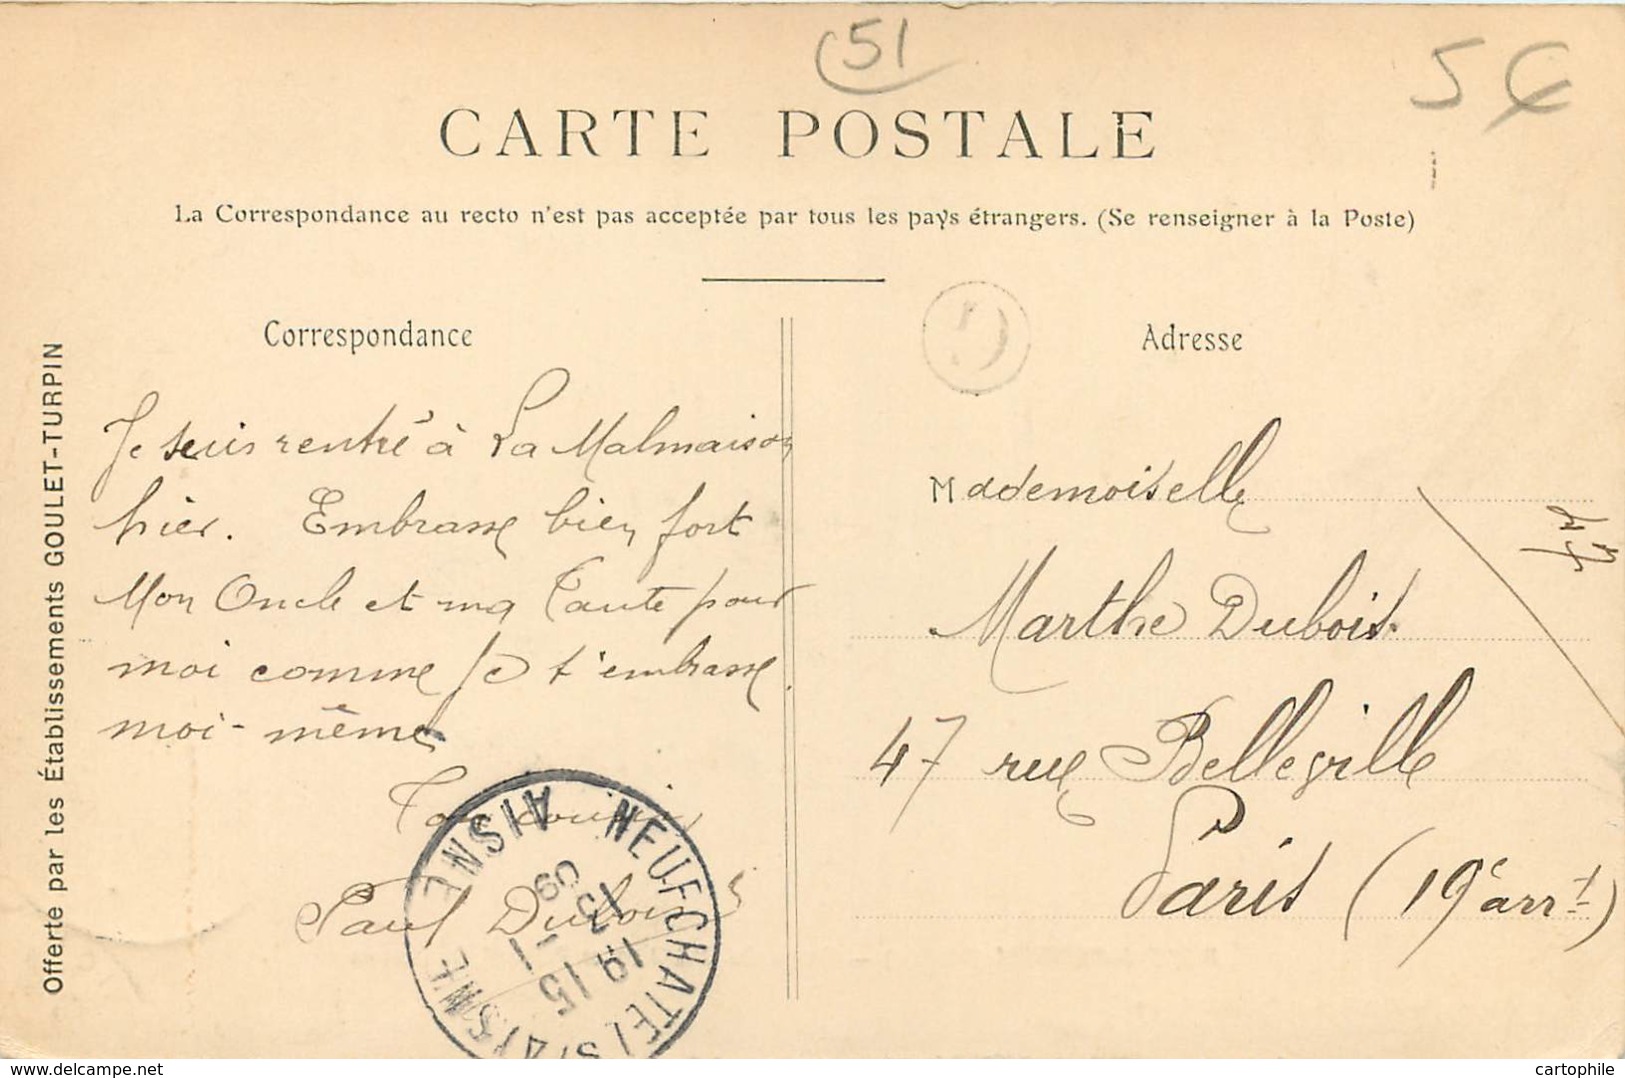 51
5€
CARTE POSTALE
La Correspondance au recto n'est pas acceptée par tous les pays étrangers. (Se renseigner à la Poste)
Correspondance
Je suis rentré à La Malmaison
hier. Embrasse bien fort
Mon Oncle et ma Tante pour
moi comme Je t'embrasse
moi-même
Ton cousin
Paul Dubois
Offerte par les Établissements GOULET-TURPIN
NEUFCHATEL S/AISNE AISNE
19 15
09
Adresse
Mademoiselle
Marthe Dubois
47 rue Belleville
Paris (19e arrt)
delcampe.net
cartophile